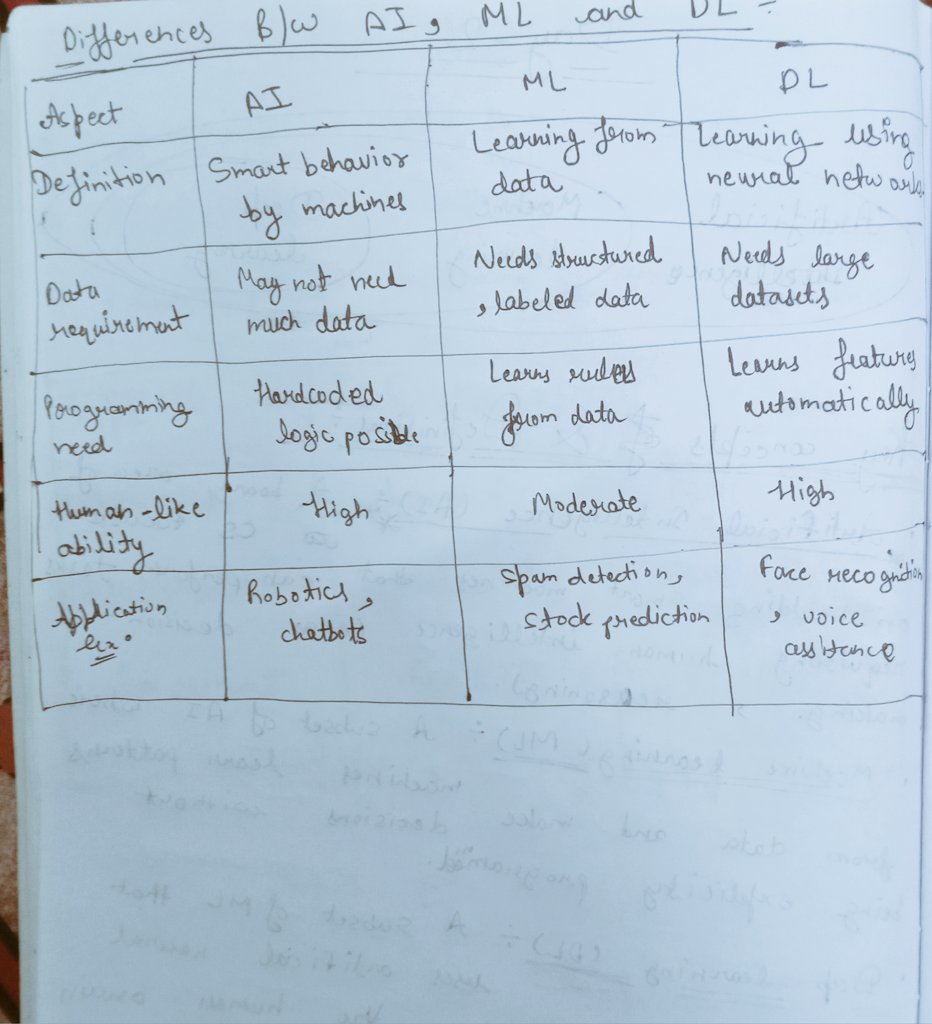 Differences B/w AI, ML and DL :-
Aspect
AI
ML
DL
Definition
Smart behavior
by machines
Learning from
data
Learning using
neural networks
Data
requirement
May not need
much data
Needs structured
, labeled data
Needs large
datasets
Programming
need
Hardcoded
logic possible
Learns rules
from data
Learns features
automatically
Human-like
ability
High
Moderate
High
Application
Ex:
Robotics,
chatbots
Spam detection,
stock prediction
Face recognition
, voice
assistance